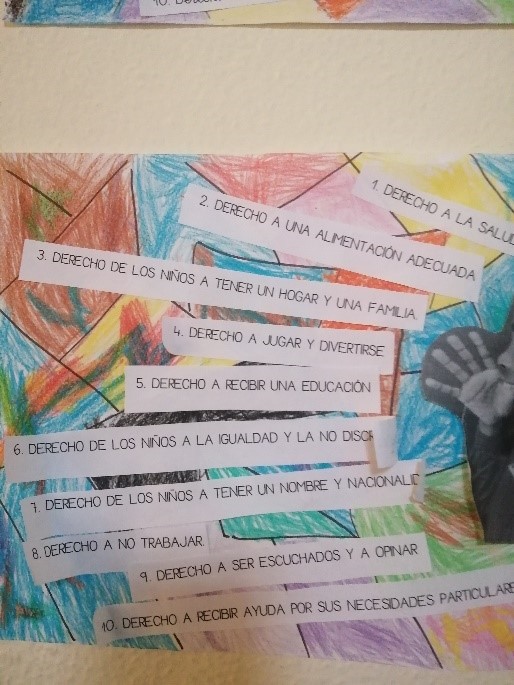 1. DERECHO A LA SALUD
2. DERECHO A UNA ALIMENTACIÓN ADECUADA
3. DERECHO DE LOS NIÑOS A TENER UN HOGAR Y UNA FAMILIA.
4. DERECHO A JUGAR Y DIVERTIRSE
5. DERECHO A RECIBIR UNA EDUCACIÓN
6. DERECHO DE LOS NIÑOS A LA IGUALDAD Y LA NO
7. DERECHO DE LOS NIÑOS A TENER UN NOMBRE Y
8. DERECHO A NO TRABAJAR.
9. DERECHO A SER ESCUCHADOS Y A OPINAR
10. DERECHO A RECIBIR AYUDA POR SUS NECESIDADES